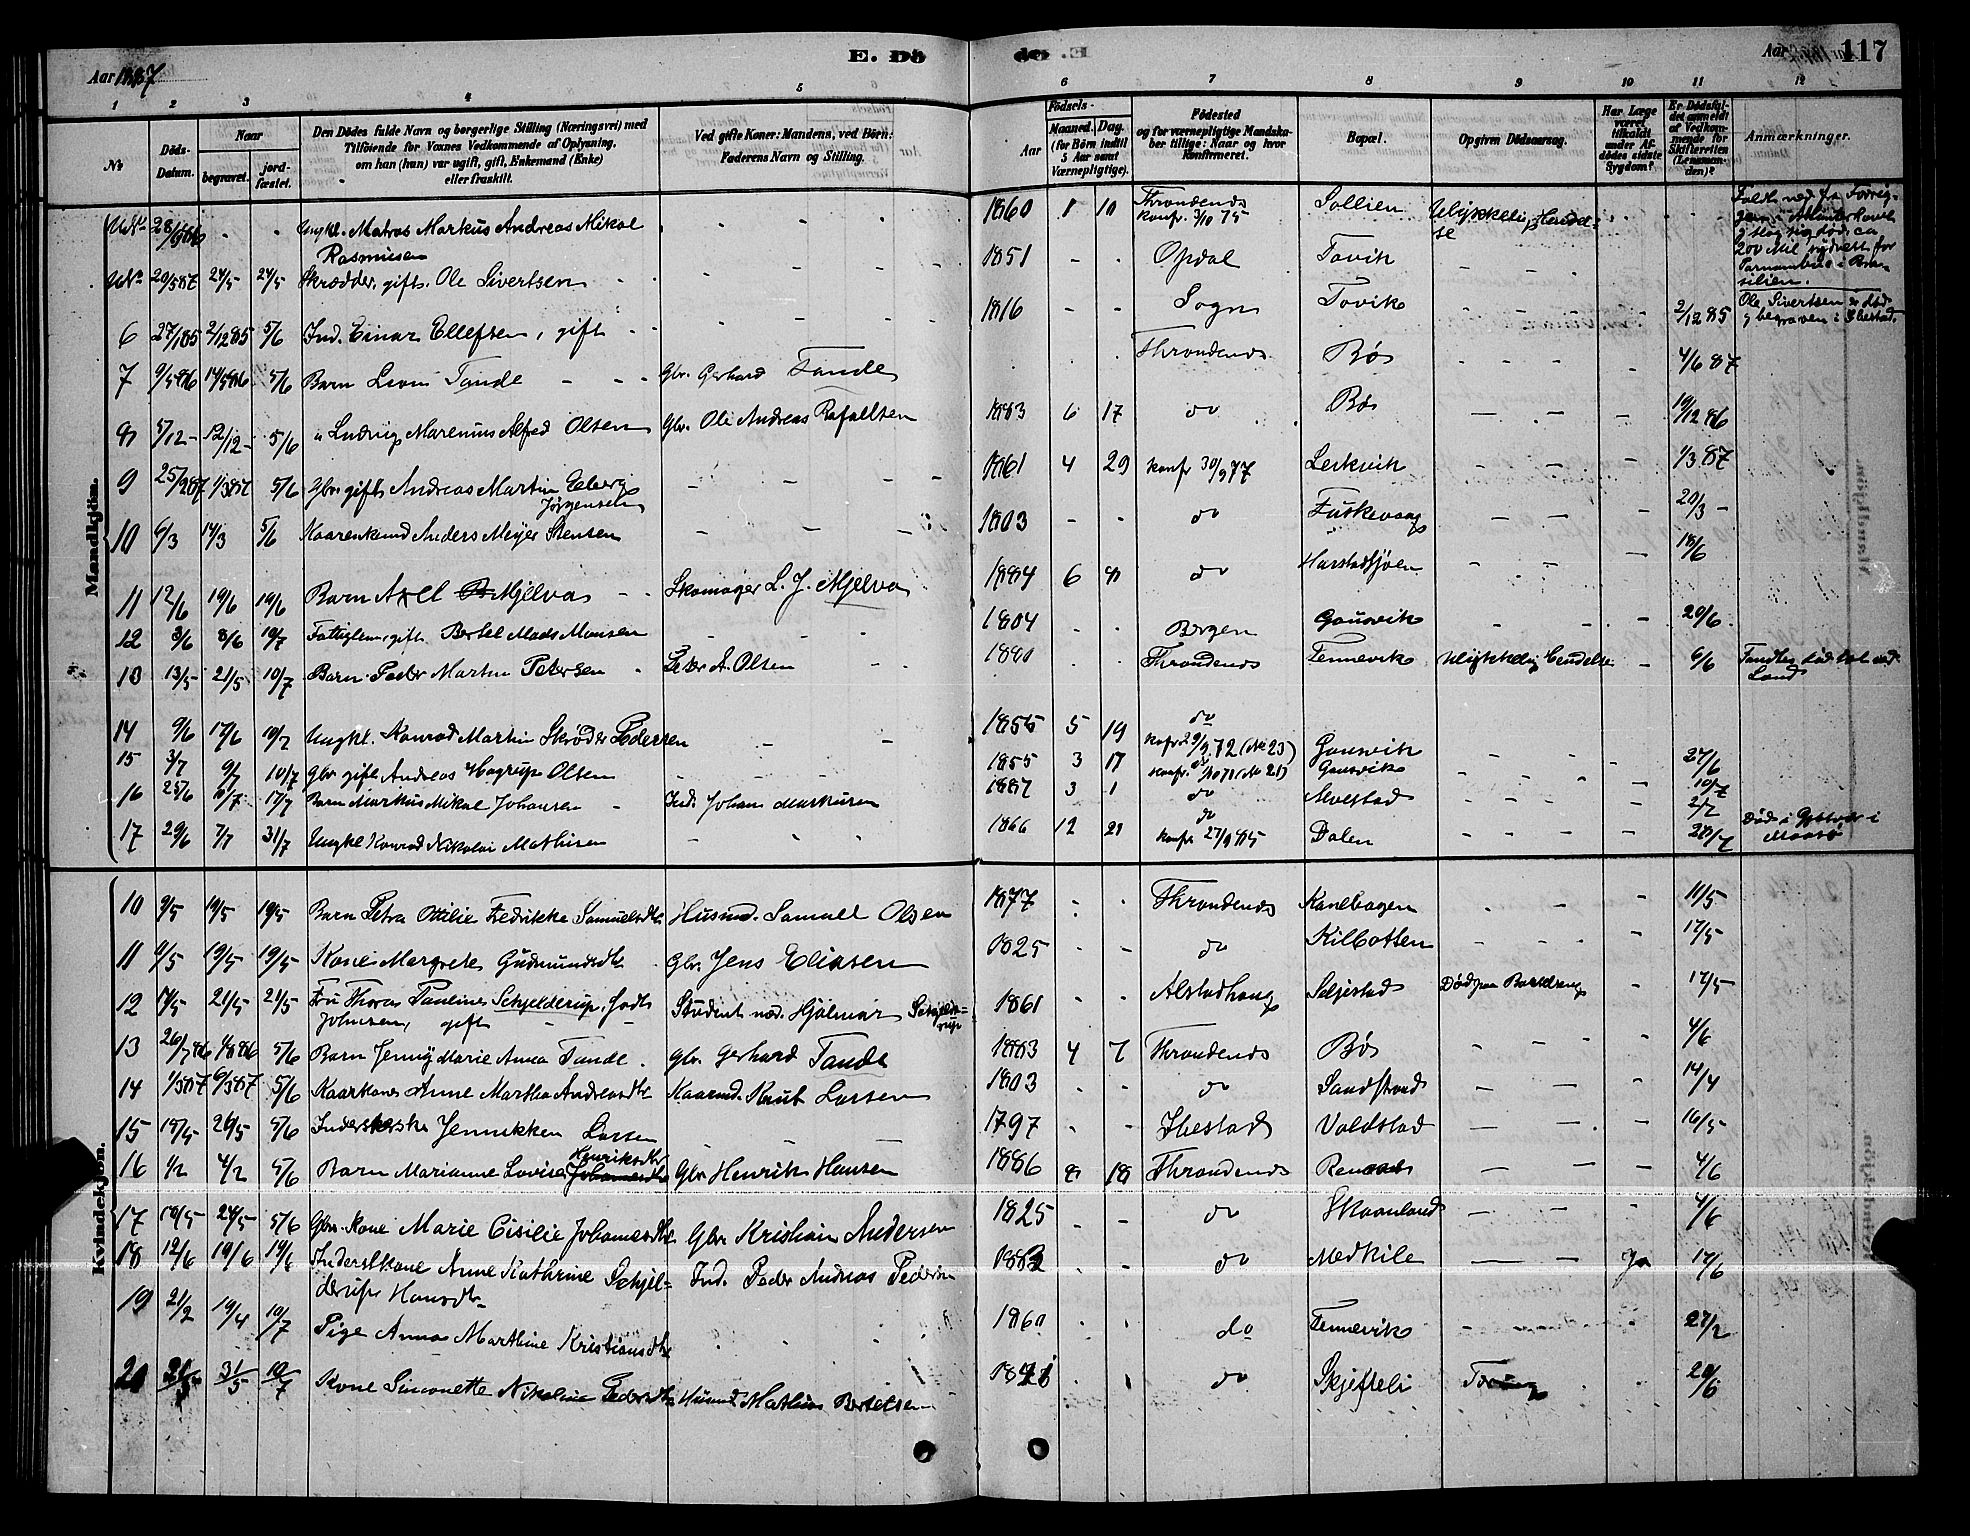 E. Dö
de
Aar 1887
Aar
117
1 2 3 4 5 6 7 8 9 10 11 12
№
Döds-Datum.
Naar
begravet.
jord-fæstet.
Den Dødes fulde Navn og borgerlige Stilling (Næringsvei) med
Tilföiende for Voxnes Vedkommende af Oplysning,
om han (hun) var ugift, gift, Enkemand (Enke)
eller fraskilt.
Ved gifte Koner: Mandens, ved Börn:
Faderens Navn og Stilling.
Födsels-
Aar
Maaned. Dag.
(for Börn indtil
5 Aar samt
Værnepligtige).
Födested
og for værnepligtige Mandska-
ber tillige: Naar og hvor
konfirmeret.
Bopæl.
Opgiven Dödsaarsag.
Har Læge
været
tilkaldt
under Af-
dödes sidste
Sygdom?
Er Dödsfal-
det anmeldt
af Vedkom-
mende for
Skifteretten
(Lensman-
den)?
Anmærkninger.
Mandkjön.
UN° 28/ 86 - - Ungkl. Matros Markus Andreas Mikal Rasmussen - - - 1860 1 10 Throndenes konf. 3/10 75 Sollien Ulykkelig Hendelse
Faldt ned fra
i Atlanterhavet
og slog sig død, ca
200 Mil sydvest for
Parnambus i Bra-
silien.
UN° 20/5 87 24/5 24/5 Skrædder, gift. Ole Sivertsen - - - 1851 - - Opdal Tovik
Ole Sivertsen er død
og begraven i Ibestad.
6 27/1 85 2/12 85 5/6 Ind. Einar Ellefsen, gift - - 1816 - - Sogn Tovik 2/12 85
7 9/5 86 14/5 86 5/6 Barn Leoni Tande - - Gbr. Gerhard Tande Throndenes Bø 4/6 87
8 5/12 - 12/12 - 5/6 " Ludvig Marenius Alfred Olsen Gbr. Ole Andreas Rafaelsen 1883 6 17 do Bø 19/12 86
9 25/2 87 1/3 87 5/6 Gbr. gift Andreas Martin Eeberg Jørgensen - - - 1861 4 29 konf 30/9 77 Leikvik 1/3 87
10 6/3 14/3 5/6 Kaarenkemd Anders Meyer Stensen - - - 1803 - - do Fuskevaag 20/3 -
11 12/6 19/6 19/6 Barn Axel Mjelva - - Skomager L. J. Mjelva 1884 6 8 do Harstadsjøen 18/6
12 3/6 8/6 10/7 Fattiglem, gift Bertel Mads Monsen - - - 1804 - - Bergen Gausvik 20/6
13 13/5 21/5 10/7 Barn Peder Martin Petersen - Peter A. Olsen 1880 Throndenes Tennevik Ulykkelig Hendelse - 6/6 Fandtes død ved Land
14 9/6 17/6 10/7 Ungkl. Konrad Martin Skrøder Pedersen - - 1856 5 19 do konf 29/9 72 (№ 23) Gausvik 27/6
15 3/7 9/7 10/7 Gbr gift Andreas Hagrup Olsen - - - 1855 3 17 do konf. 1/10 71 (№ 21) Gausvik 10/7
16 25/6 3/7 17/7 Barn Markus Mikal Johansen - Ind. Johan Markusen 1887 3 1 do Alvestad 2/7
17 29/6 7/7 31/7 Ungkl Konrad Nikolai Mathisen - - - 1866 12 21 do konf 27/9 85 Dalen 28/7 Døde i i Maasø
Kvindekjön.
10 9/5 19/5 19/5 Barn Petra Ottilie Fredrikke Samuelsdtr Husmd. Samuel Olsen 1877 - - Throndenes Kanebogen 11/5
11 9/5 19/5 19/5 Kone Margrete Gudmundsdtr Gbr. Jens Eliasen 1825 - - do Kilbotten 17/5
12 14/5 21/5 21/5 Fru Thora Pauline Schjelderup, født Johnsen, gift Student med. Hjalmar Schjelderup 1861 - - Alstadhaug Seljestad Død paa Barselseng - 17/5
13 26/7 86 1/8 86 5/6 Barn Jenny Marie Anna Tande. Gbr. Gerhard Tande 1883 4 7 Throndenes Bø 4/6
14 1/3 87 6/3 87 5/6 Kaarkone Anne Martha Andreasdtr Kaarmd. Knut Larsen 1803 - - do Sandstrand 14/4
15 18/5 26/5 5/6 Indersterske Jennikken Larsen - - - 1797 - - Ibestad Voldstad 16/5
16 1/2 4/2 5/6 Barn Marianne Lovise Henriksdtr Gbr Henrik Hansen 1886 8 18 Throndenes 4/6
17 18/5 24/5 5/6 Gbr. Kone Marie Cisilie Johannesdtr Gbr Kristian Andersen 1825 - - do Skaanland 4/6
18 12/6 19/6 19/6 Inderstkone Anne Kathrine Schjelderup Hansdtr Ind. Peder Andreas Pedersen - - do Medkile Ja 17/6
19 21/2 19/4 10/7 Pige Anna Marthine Kristiansdtr - - 1860 - - do Tennevik 27/2
20 21/5 31/5 10/7 Kone Simonette Nikoline Pedersdtr Husmd Mathias Bertelsen - - do Skjefteli 20/6